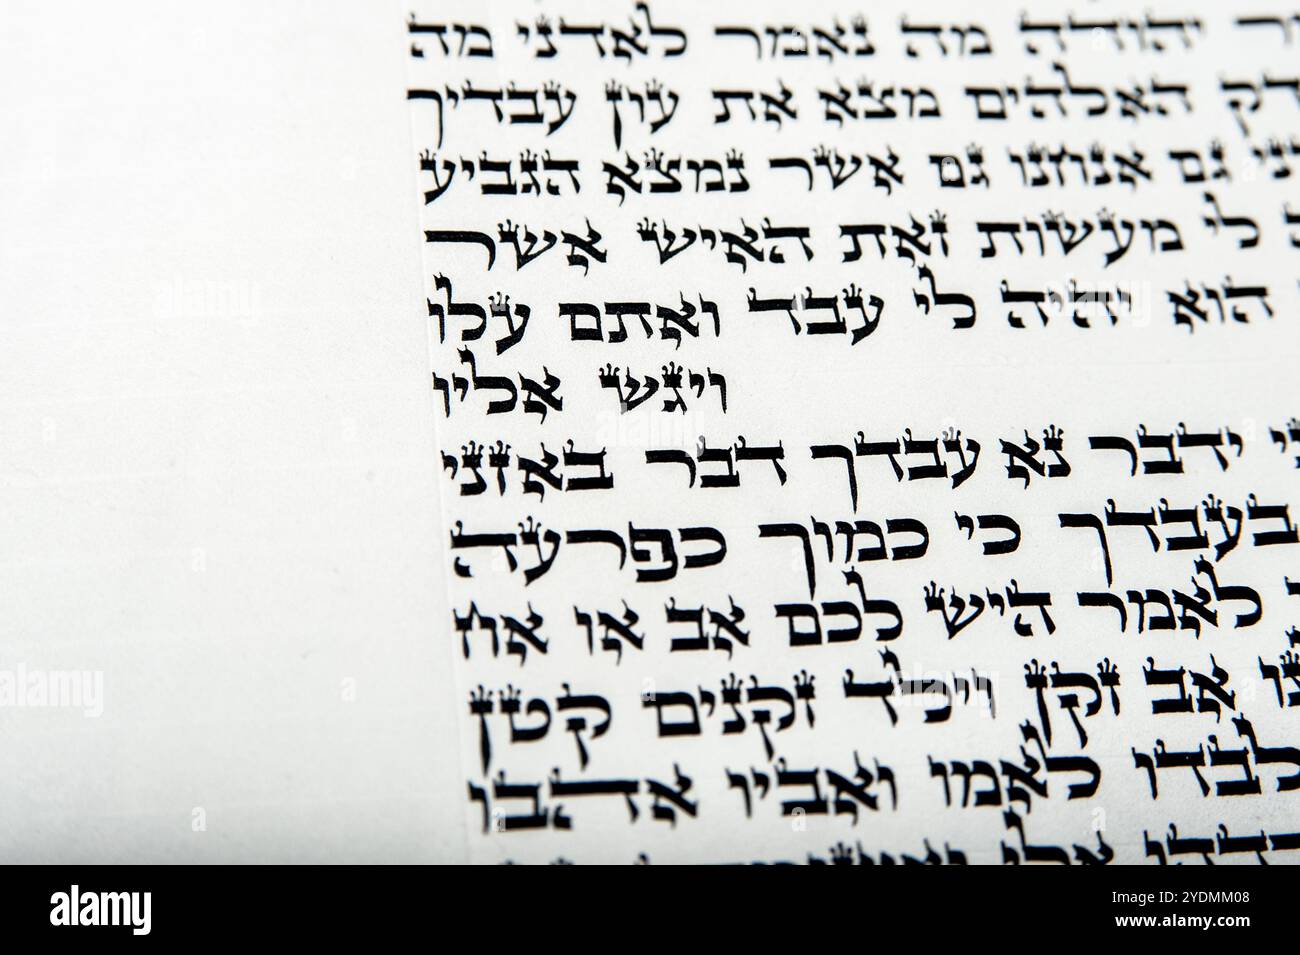 יהודה מה נאמר לאדני מה
האלהים מצא את עון עבדיך
גם אנחנו גם אשר נמצא הגביע
לי מעשות זאת האיש אשר
הוא יהיה לי עבד ואתם עלו
ויגש אליו
ידבר נא עבדך דבר באזני
בעבדך כי כמוך כפרעה
לאמר היש לכם אב או אח
אב זקן וילד זקנים קטן
לבדו לאמו ואביו אהבו
alamy
Image ID: 2YDMM08
www.alamy.com